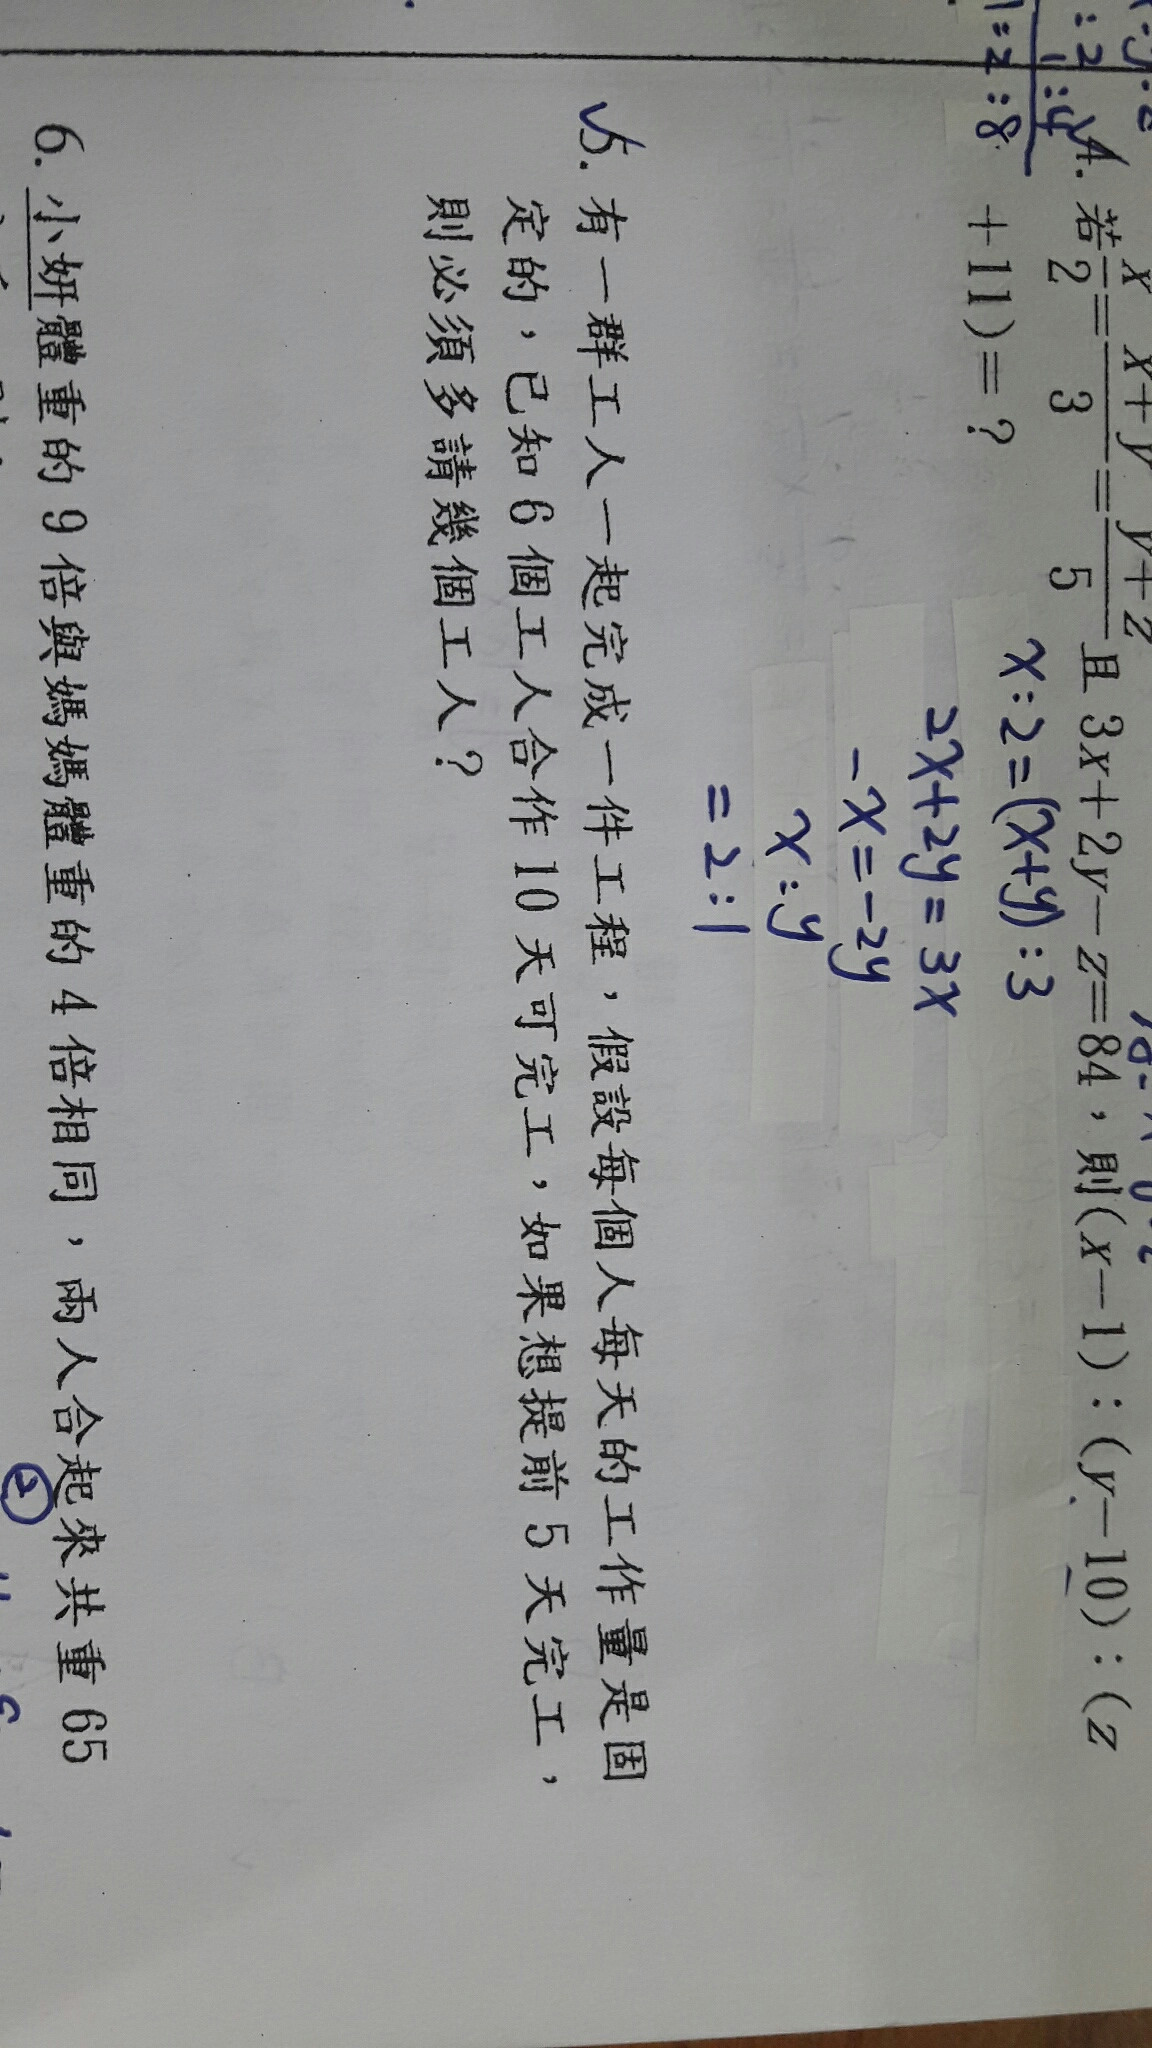 :2
:4
1=z:8
4. 若x/2=(x+y)/3=(y+z)/5且3x+2y-z=84,則(x-1):(y-10):(z
+11)=?
x:2=(x+y):3
2x+2y=3x
-x=-2y
x:y
=2:1
5. 有一群工人一起完成一件工程,假設每個人每天的工作量是固
定的,已知6個工人合作10天可完工,如果想提前5天完工,
則必須多請幾個工人?
6. 小妍體重的9倍與媽媽體重的4倍相同,兩人合起來共重65
②